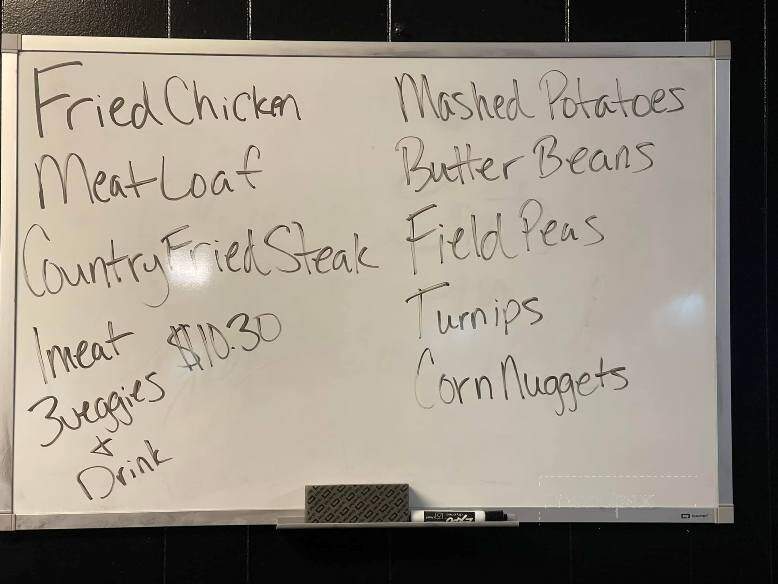 Fried Chicken
Meat Loaf
Country Fried Steak
1 meat $10.30
3 veggies
&
Drink
Mashed Potatoes
Butter Beans
Field Peas
Turnips
Corn Nuggets
EXPO